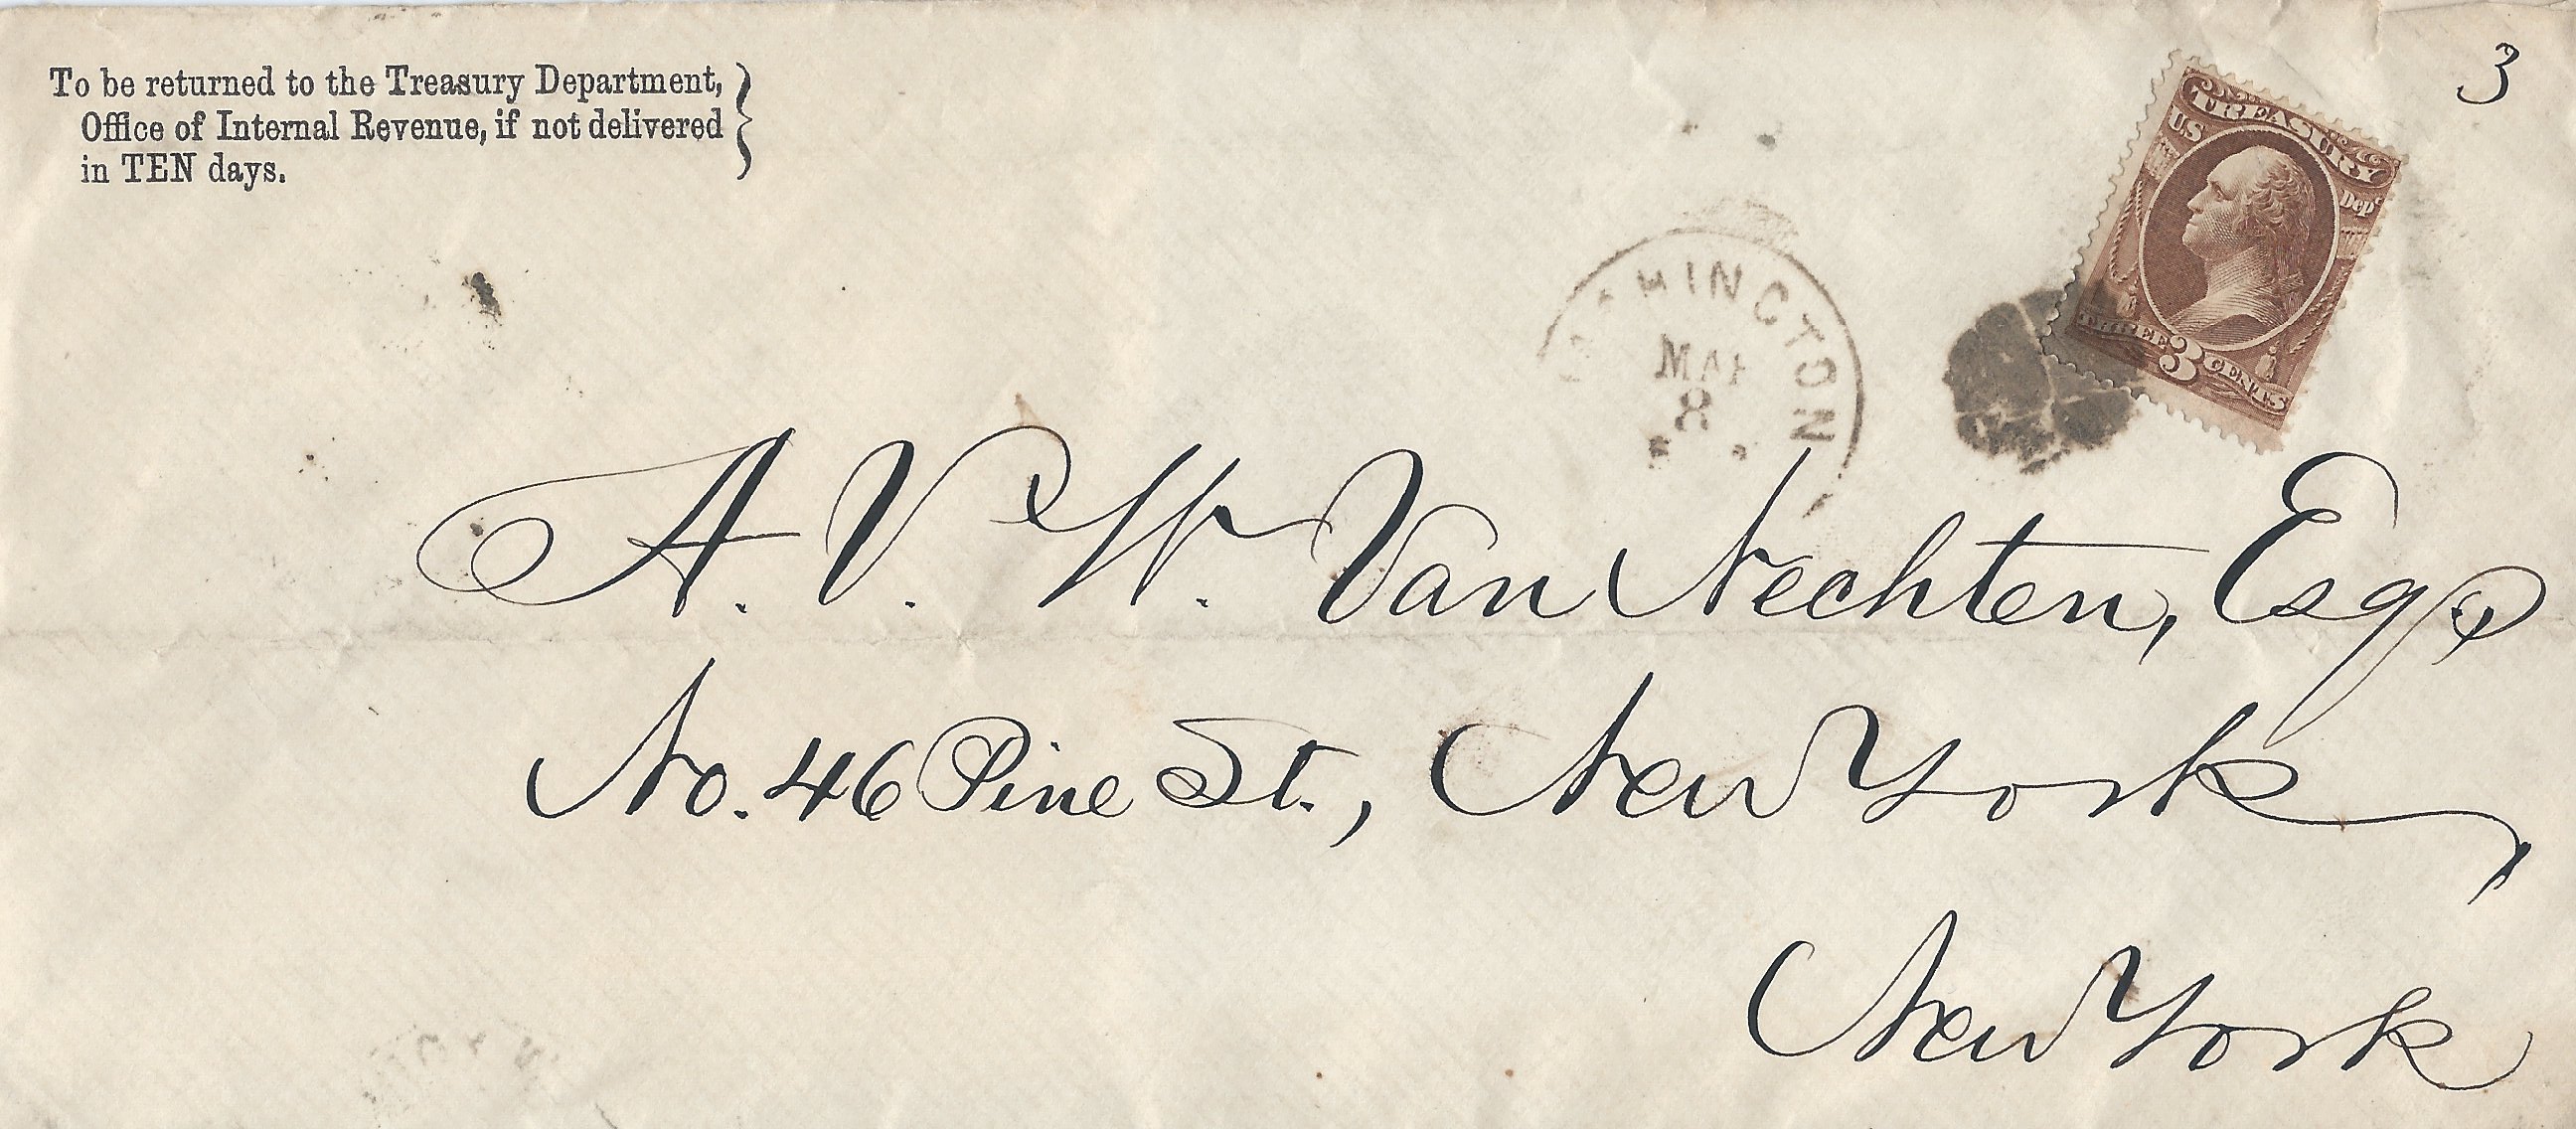 To be returned to the Treasury Department,
Office of Internal Revenue, if not delivered
in TEN days.
3
TREASURY
U.S.
Dept
THREE 3 CENTS
MAR
8
A. V. W. Van Nechten, Esq.,
No. 46 Pine St., New York,
New York